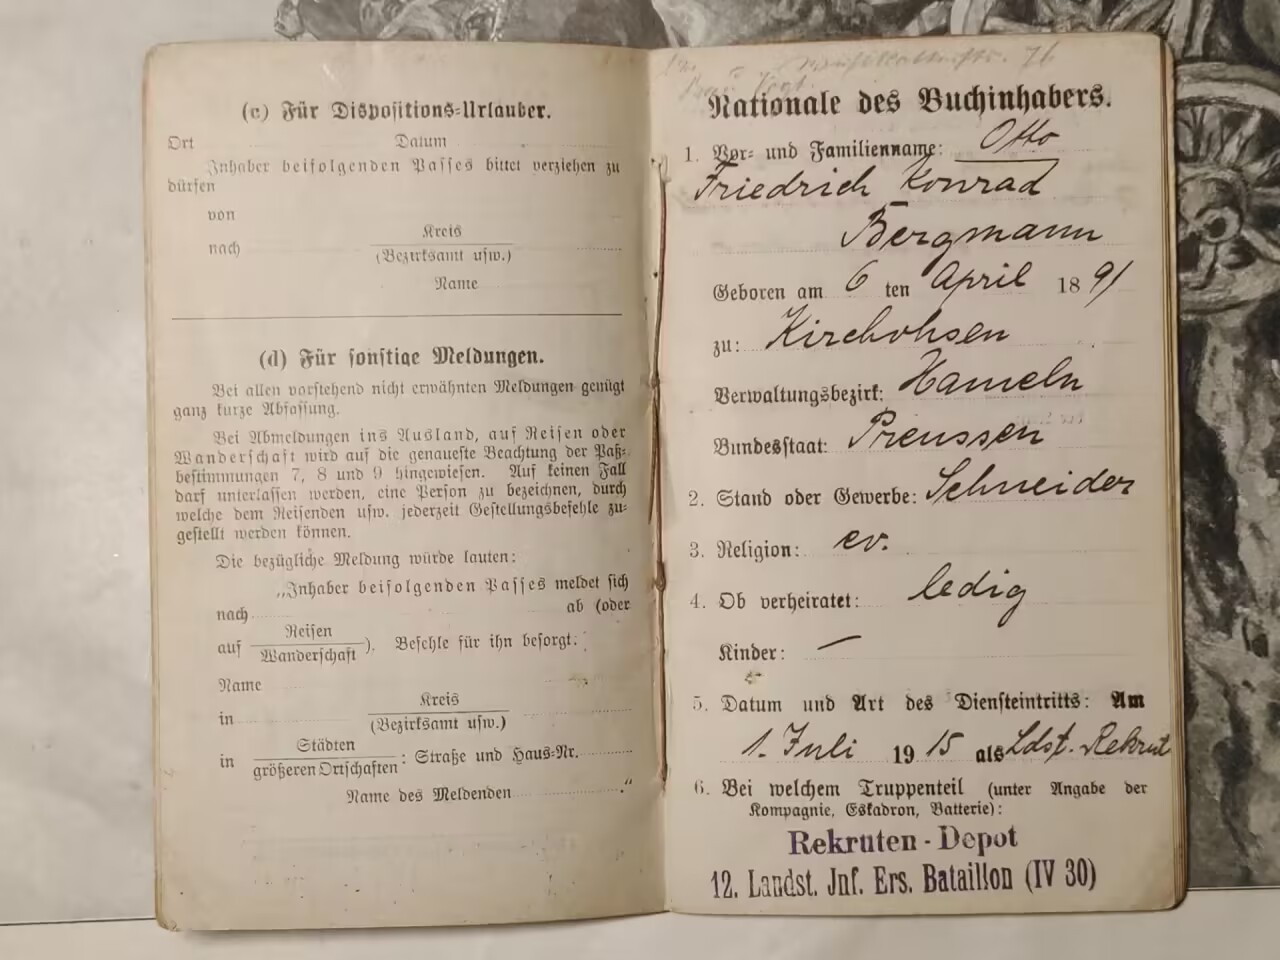 (c) Für Dispositions-Urlauber.
Ort Datum
Inhaber beifolgenden Passes bittet verziehen zu
dürfen
von
nach Kreis
(Bezirksamt usw.)
Name
(d) Für sonstige Meldungen.
Bei allen vorstehend nicht erwähnten Meldungen genügt
ganz kurze Abfassung.
Bei Abmeldungen ins Ausland, auf Reisen oder
Wanderschaft wird auf die genaueste Beachtung der Paß-
bestimmungen 7, 8 und 9 hingewiesen. Auf keinen Fall
darf unterlassen werden, eine Person zu bezeichnen, durch
welche dem Reisenden usw. jederzeit Gestellungsbefehle zu-
gestellt werden können.
Die bezügliche Meldung würde lauten:
„Inhaber beifolgenden Passes meldet sich
nach ab (oder
auf Reisen
Wanderschaft ). Befehle für ihn besorgt:
Name
in Kreis
(Bezirksamt usw.)
in Städten
größeren Ortschaften : Straße und Haus-Nr.
Name des Meldenden "
76
Vogt.
Nationale des Buchinhabers.
1. Vor- und Familienname: Otto
Friedrich Konrad
Bergmann
Geboren am 6 ten April 1891
zu: Kirchohsen
Verwaltungsbezirk: Hameln
Bundesstaat: Preussen
2. Stand oder Gewerbe: Schneider
3. Religion: ev.
4. Ob verheiratet: ledig
Kinder: —
5. Datum und Art des Diensteintritts: Am
1. Juli 1915 als Ldst. Rekrut
6. Bei welchem Truppenteil (unter Angabe der
Kompagnie, Eskadron, Batterie):
Rekruten-Depot
12. Landst. Inf. Ers. Bataillon (IV 30)